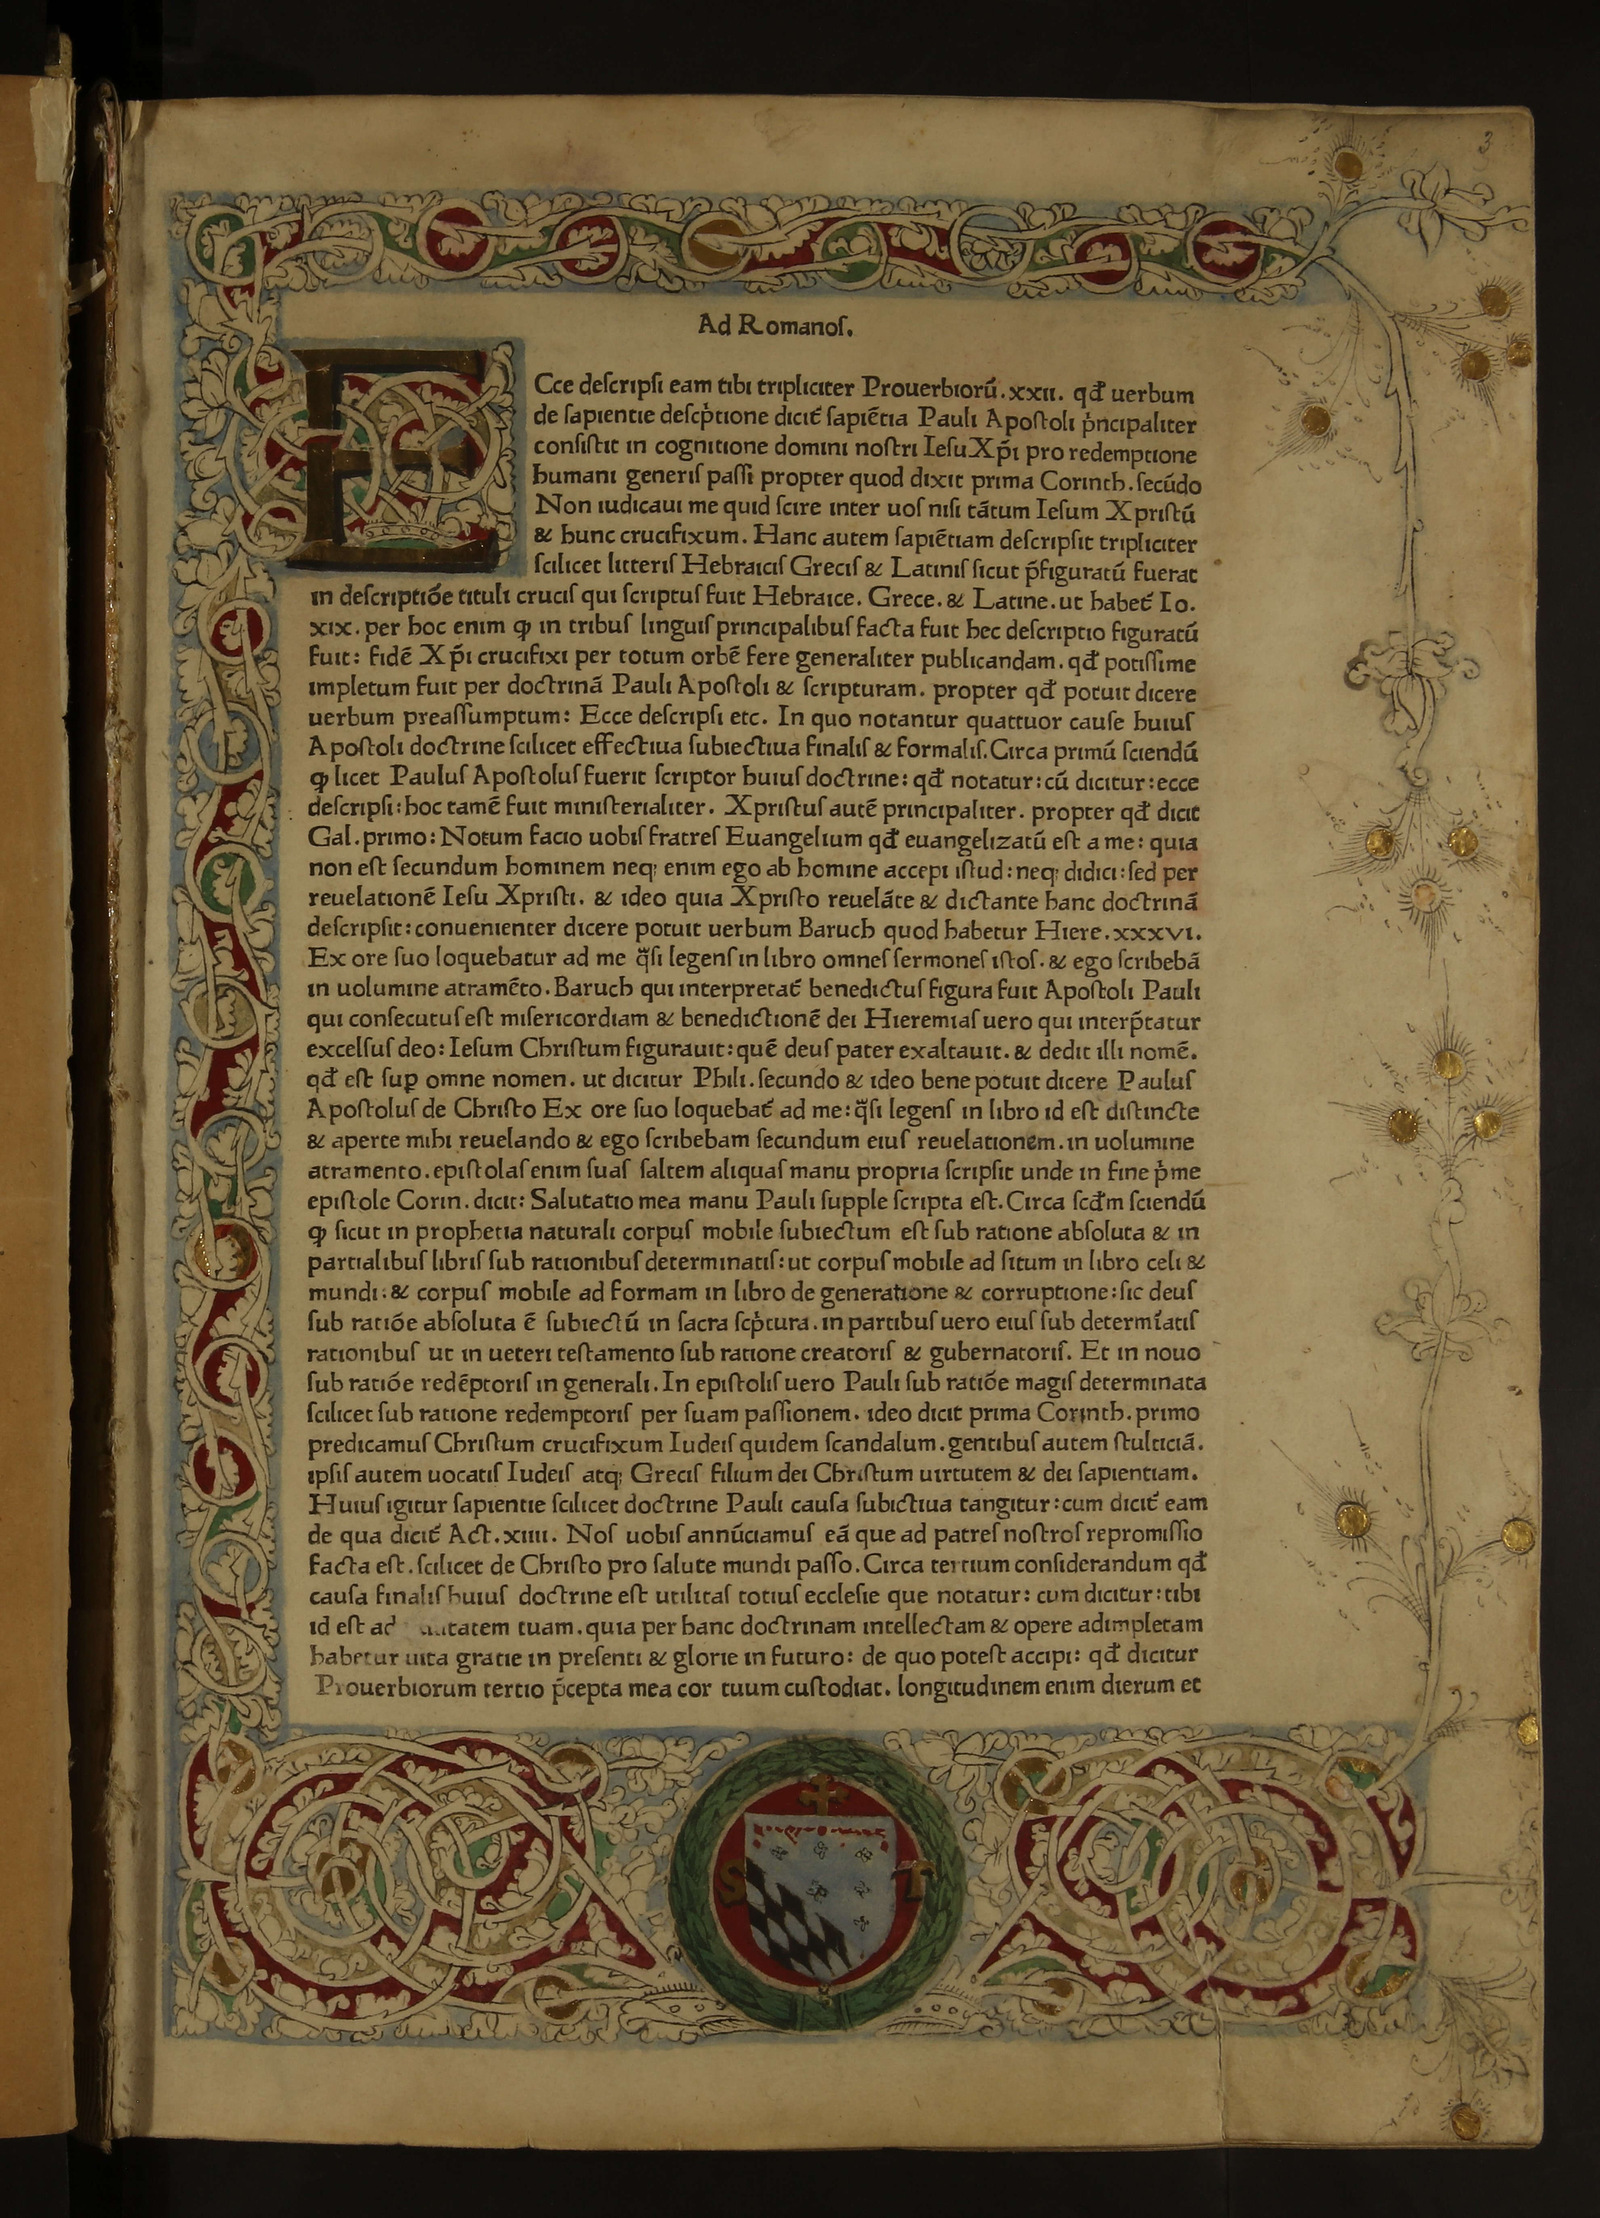 3
Ad Romanoſ.
ECce deſcripſi eam tibi tripliciter Prouerbiorū.xxii. qđ uerbum
de ſapientie deſcṗtione dicit̄ ſapiētia Pauli Apoſtoli ṗncipaliter
conſiſtit in cognitione domini noſtri Ieſu Xp̄i pro redemptione
humani generiſ paſſi propter quod dixit prima Corinth.ſecūdo
Non iudicaui me quid ſcire inter uoſ niſi tātum Ieſum Xpriſtū
& hunc crucifixum. Hanc autem ſapiētiam deſcripſit tripliciter
ſcilicet litteriſ Hebraiciſ Greciſ & Latiniſ ſicut p̄figuratū fuerat
in deſcriptiōe tituli cruciſ qui ſcriptuſ fuit Hebraice. Grece. & Latine.ut habet̄ Io.
xix. per hoc enim ꝙ in tribuſ linguiſ principalibuſ facta fuit hec deſcriptio figuratū
fuit: fidē Xp̄i crucifixi per totum orbē fere generaliter publicandam. qđ potiſſime
impletum fuit per doctrinā Pauli Apoſtoli & ſcripturam. propter qđ potuit dicere
uerbum preaſſumptum: Ecce deſcripſi etc. In quo notantur quattuor cauſe huiuſ
Apoſtoli doctrine ſcilicet effectiua ſubiectiua finaliſ & formaliſ.Circa primū ſciendū
ꝙ licet Pauluſ Apoſtoluſ fuerit ſcriptor huiuſ doctrine: qđ notatur:cū dicitur:ecce
deſcripſi:hoc tamē fuit miniſterialiter. Xpriſtuſ autē principaliter. propter qđ dicit
Gal.primo: Notum facio uobiſ fratreſ Euangelium qđ euangelizatū eſt a me: quia
non eſt ſecundum hominem neq; enim ego ab homine accepi iſtud:neq; didici:ſed per
reuelationē Ieſu Xpriſti. & ideo quia Xpriſto reuelāte & dictante hanc doctrinā
deſcripſit:conuenienter dicere potuit uerbum Baruch quod habetur Hiere.xxxvi.
Ex ore ſuo loquebatur ad me q̄ſi legenſ in libro omneſ ſermoneſ iſtoſ. & ego ſcribebā
in uolumine atramēto.Baruch qui interpretat̄ benedictuſ figura fuit Apoſtoli Pauli
qui conſecutuſ eſt miſericordiam & benedictionē dei Hieremiaſ uero qui interp̄tatur
excelſuſ deo: Ieſum Chriſtum figurauit: quē deuſ pater exaltauit. & dedit illi nomē.
qđ eſt ſuꝑ omne nomen. ut dicitur Phili.ſecundo & ideo bene potuit dicere Pauluſ
Apoſtoluſ de Chriſto Ex ore ſuo loquebat̄ ad me: q̄ſi legenſ in libro id eſt diſtincte
& aperte mihi reuelando & ego ſcribebam ſecundum eiuſ reuelationem.in uolumine
atramento.epiſtolaſ enim ſuaſ ſaltem aliquaſ manu propria ſcripſit unde in fine ṗme
epiſtole Corin.dicit: Salutatio mea manu Pauli ſupple ſcripta eſt.Circa ſcđm ſciendū
ꝙ ſicut in prophetia naturali corpuſ mobile ſubiectum eſt ſub ratione abſoluta & in
partialibuſ libriſ ſub rationibuſ determinatiſ:ut corpuſ mobile ad ſitum in libro celi &
mundi:& corpuſ mobile ad formam in libro de generatione & corruptione:ſic deuſ
ſub ratiōe abſoluta ē ſubiectū in ſacra ſcṗtura.in partibuſ uero eiuſ ſub determīatiſ
rationibuſ ut in ueteri teſtamento ſub ratione creatoriſ & gubernatoriſ. Et in nouo
ſub ratiōe redēptoriſ in generali.In epiſtoliſ uero Pauli ſub ratiōe magiſ determinata
ſcilicet ſub ratione redemptoriſ per ſuam paſſionem. ideo dicit prima Corinth. primo
predicamuſ Chriſtum crucifixum Iudeiſ quidem ſcandalum.gentibuſ autem ſtulticiā.
ipſiſ autem uocatiſ Iudeiſ atq; Greciſ filium dei Chriſtum uirtutem & dei ſapientiam.
Huiuſ igitur ſapientie ſcilicet doctrine Pauli cauſa ſubictiua tangitur:cum dicit̄ eam
de qua dicit̄ Act.xiiii. Noſ uobiſ annūciamuſ eā que ad patreſ noſtroſ repromiſſio
facta eſt.ſcilicet de Chriſto pro ſalute mundi paſſo.Circa tertium conſiderandum qđ
cauſa finaliſ huiuſ doctrine eſt utilitaſ totiuſ eccleſie que notatur: cum dicitur:tibi
id eſt ad tuam.quia per hanc doctrinam intellectam & opere adimpletam
habetur uita gratie in preſenti & glorie in futuro: de quo poteſt accipi: qđ dicitur
Prouerbiorum tertio p̄cepta mea cor tuum cuſtodiat. longitudinem enim dierum et
S T